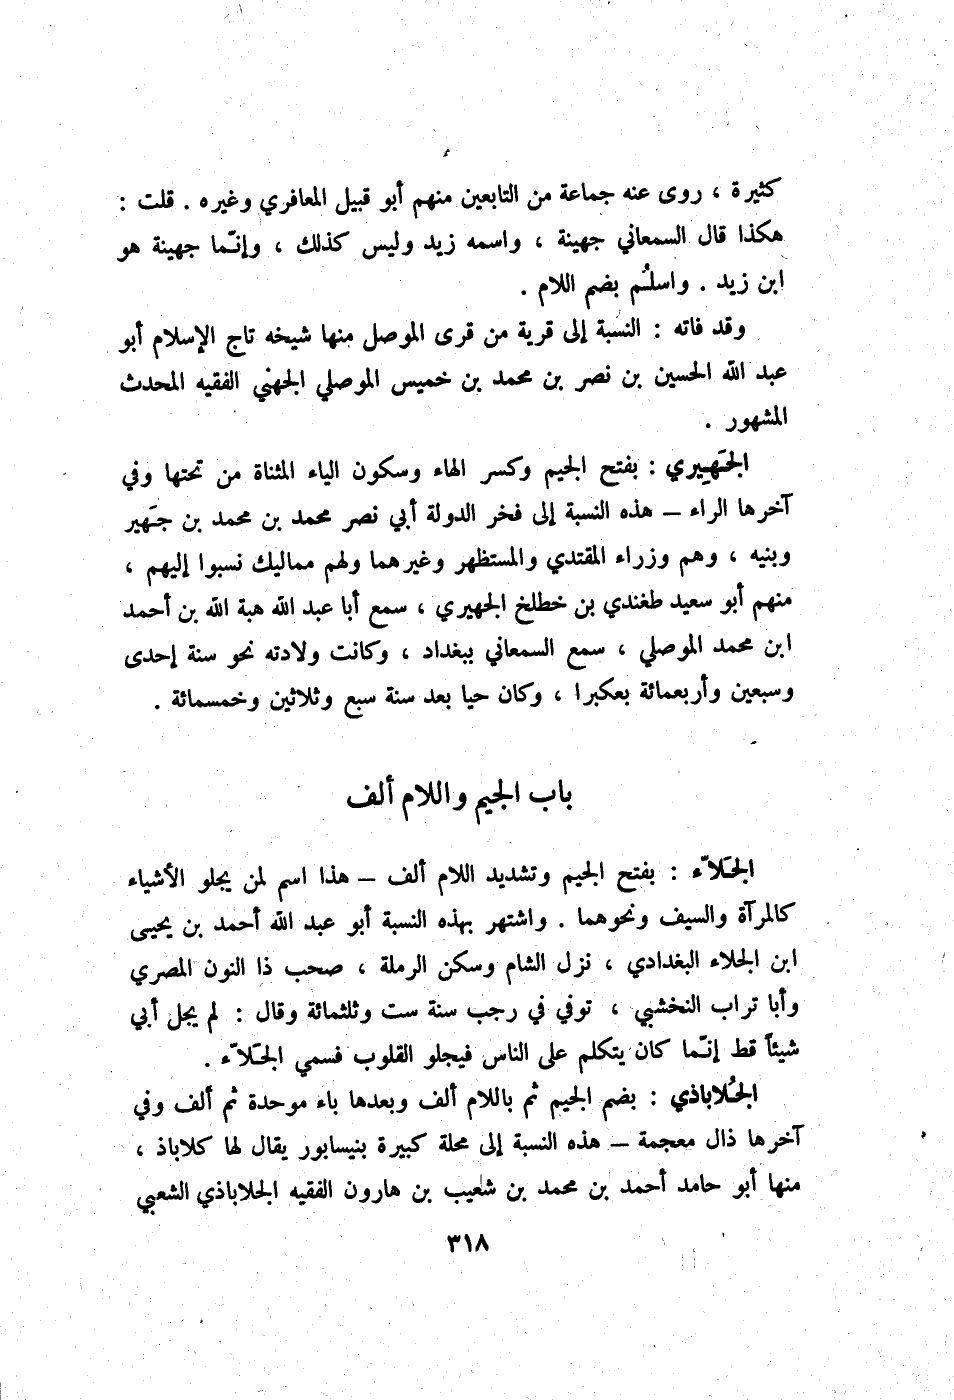 كثيرة ، روى عنه جماعة من التابعين منهم أبو قبيل المعافري وغيره . قلت :
هكذا قال السمعاني جهينة ، واسمه زيد وليس كذلك ، وإنّما جهينة هو
ابن زيد . واسلُم بضم اللام .
وقد فاته : النسبة إلى قرية من قرى الموصل منها شيخه تاج الإسلام أبو
عبد الله الحسين بن نصر بن محمد بن خميس الموصلي الجهني الفقيه المحدث
المشهور .
الجَهِيري : بفتح الجيم وكسر الهاء وسكون الياء المثناة من تحتها وفي
آخرها الراء ــ هذه النسبة إلى فخر الدولة أبي نصر محمد بن محمد بن جَهير
وبنيه ، وهم وزراء المقتدي والمستظهر وغيرهما ولهم مماليك نسبوا إليهم ،
منهم أبو سعيد طغندي بن خطلخ الجهيري ، سمع أبا عبد الله هبة الله بن أحمد
ابن محمد الموصلي ، سمع السمعاني ببغداد ، وكانت ولادته نحو سنة إحدى
وسبعين وأربعمائة بعكبرا ، وكان حيا بعد سنة سبع وثلاثين وخمسمائة .
باب الجيم واللام ألف
الجَلاّء : بفتح الجيم وتشديد اللام ألف ــ هذا اسم لمن يجلو الأشياء
كالمرآة والسيف ونحوهما . واشتهر بهذه النسبة أبو عبد الله أحمد بن يحيى
ابن الجلاء البغدادي ، نزل الشام وسكن الرملة ، صحب ذا النون المصري
وأبا تراب النخشبي ، توفي في رجب سنة ست وثلثمائة وقال : لم يجل أبي
شيئاً قط إنّما كان يتكلم على الناس فيجلو القلوب فسمي الجَلاّء .
الجُلاباذي : بضم الجيم ثم باللام ألف وبعدها باء موحدة ثم ألف وفي
آخرها ذال معجمة ــ هذه النسبة إلى محلة كبيرة بنيسابور يقال لها كلاباذ ،
منها أبو حامد أحمد بن محمد بن شعيب بن هارون الفقيه الجلاباذي الشعبي
٣١٨